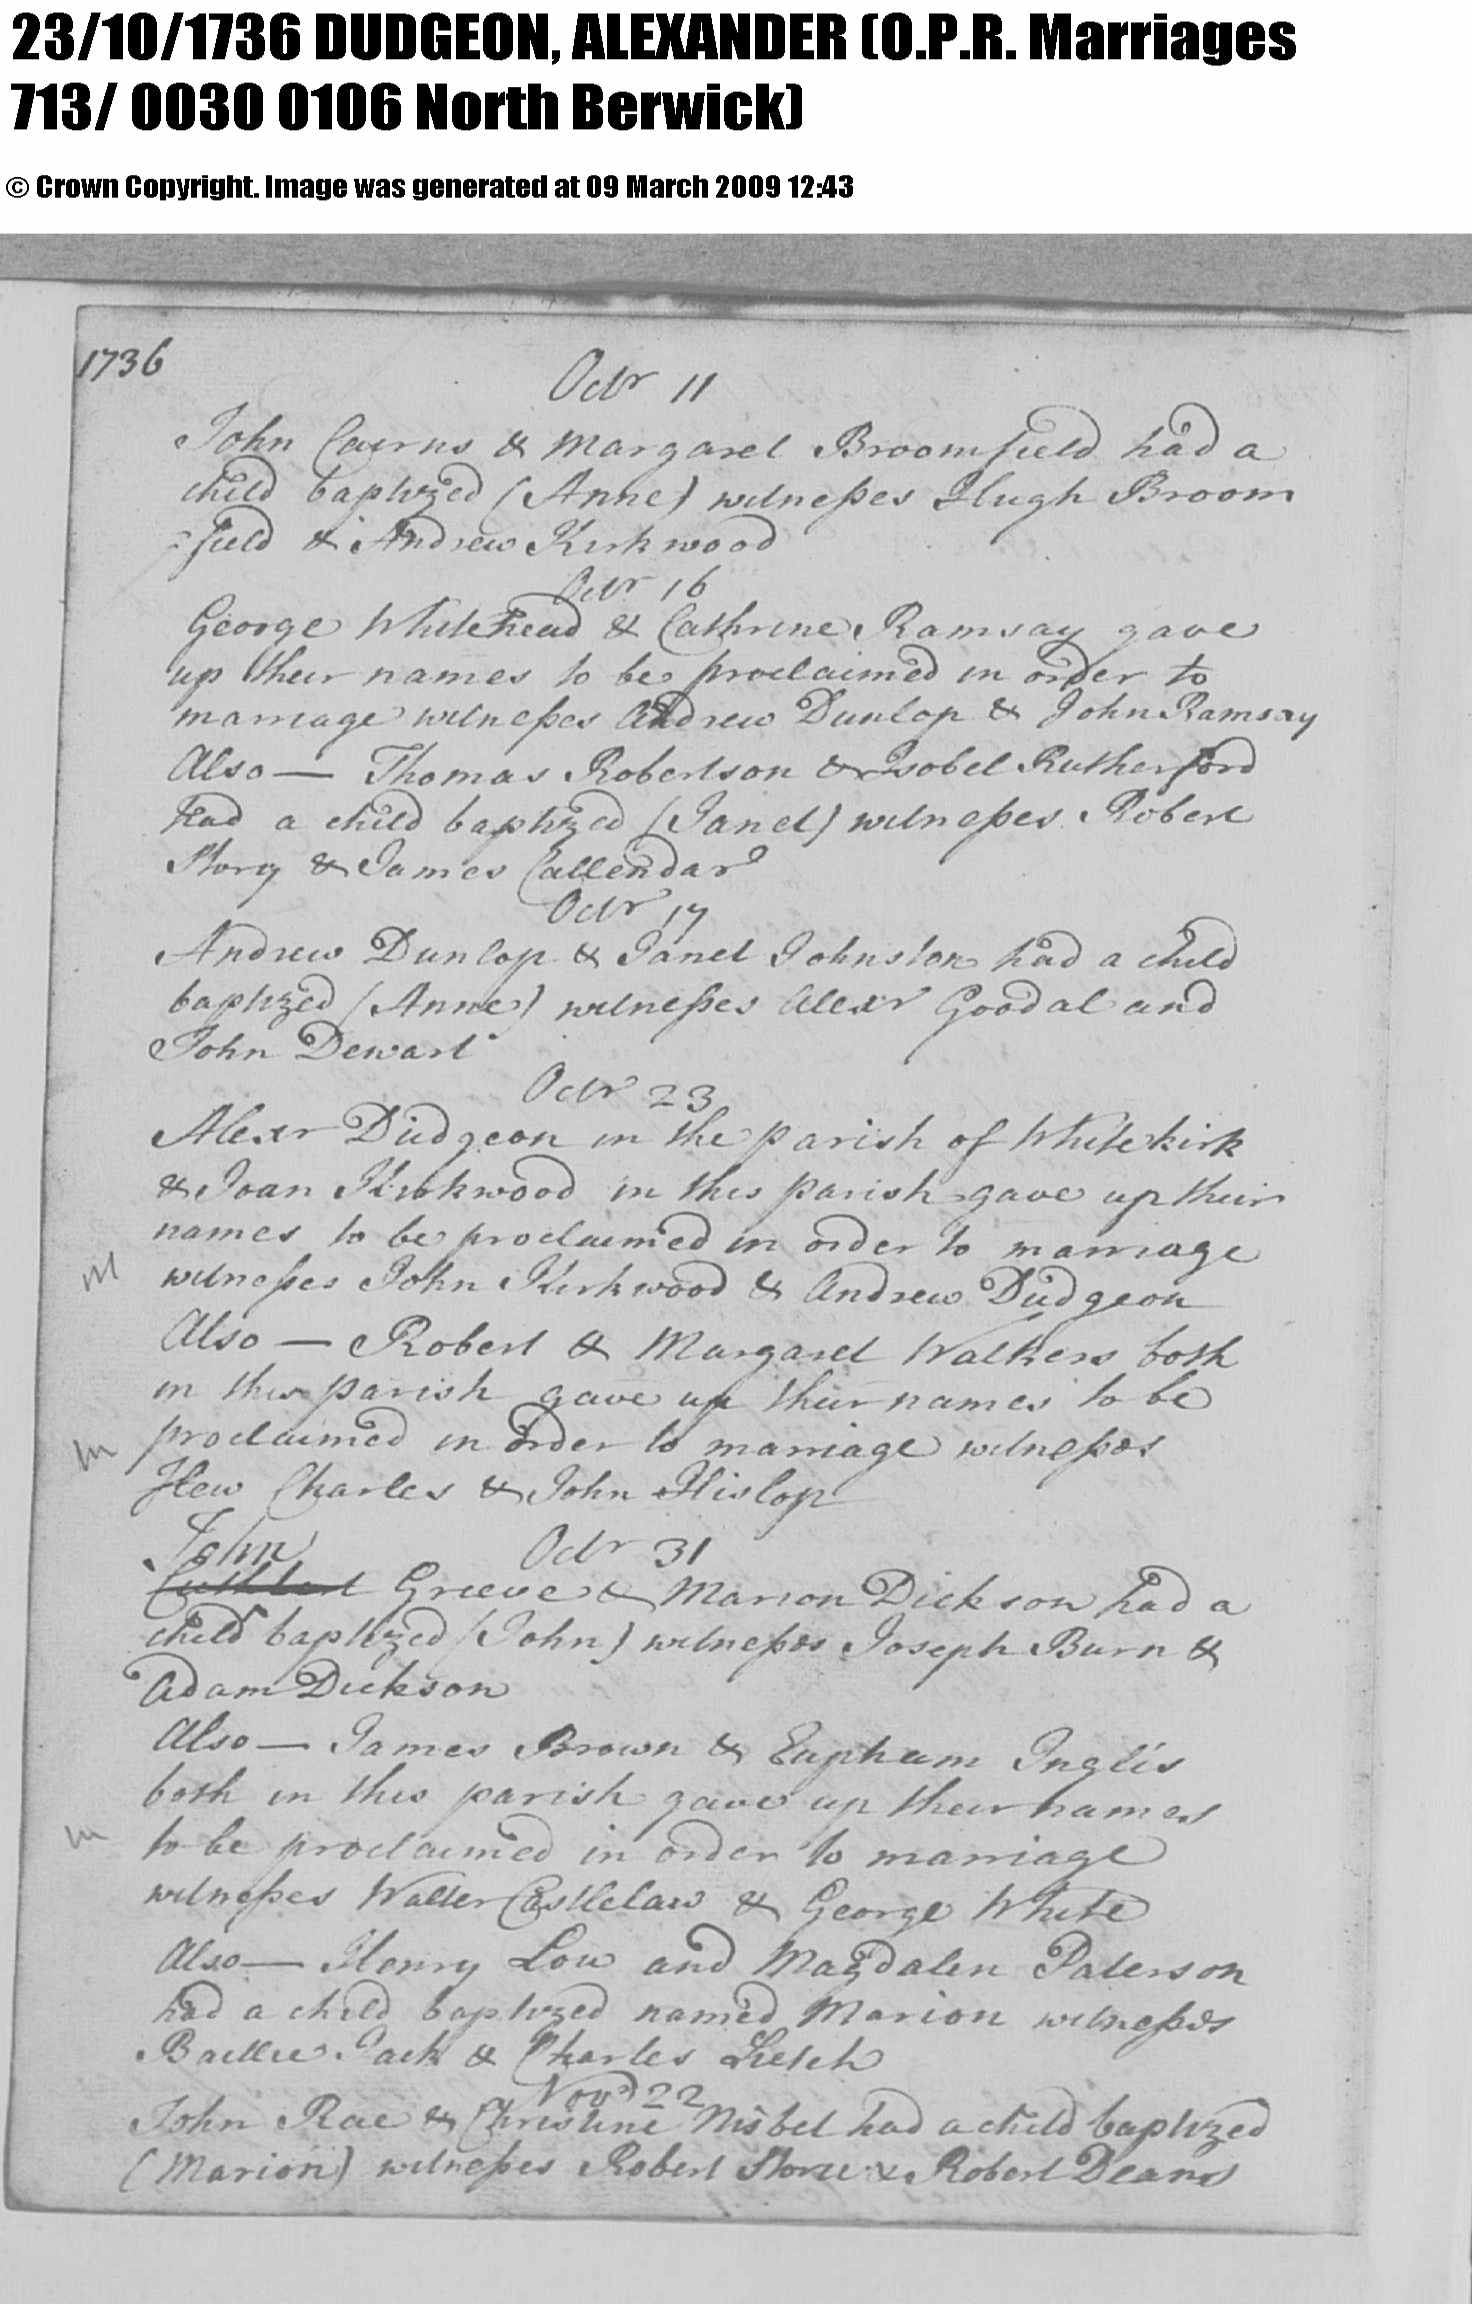 23/10/1736 DUDGEON, ALEXANDER (O.P.R. Marriages
713/ 0030 0106 North Berwick)
© Crown Copyright. Image was generated at 09 March 2009 12:43
1736
Octr 11
John Cairns & Margaret Broomfield had a
child baptized (Anne) witnesses Hugh Broom
=field & Andrew Kirkwood
Octr 16
George Whitehead & Cathrine Ramsay gave
up their names to be proclaimed in order to
marriage witnesses Andrew Dunlop & John Ramsay
Also — Thomas Robertson & Isobel Rutherford
had a child baptized (Janet) witnesses Robert
Story & James Callendar
Octr 17
Andrew Dunlop & Janet Johnston had a child
baptized (Anne) witnesses Alexr Goodal and
John Dewart
Octr 23
Alexr Dudgeon in the parish of Whitekirk
& Joan Kirkwood in this parish gave up their
names to be proclaimed in order to marriage
m witnesses John Kirkwood & Andrew Dudgeon
Also — Robert & Margaret Walkers both
in this parish gave up their names to be
m proclaimed in order to marriage witnesses
Hew Charles & John Hislop
John Octr 31
Cuthbert Grieve & Marion Dickson had a
child baptized (John) witnesses Joseph Burn &
Adam Dickson
Also — James Brown & Eupham Inglis
both in this parish gave up their names
m to be proclaimed in order to marriage
witnesses Walter Castlelaw & George White
Also — Henry Low and Magdalen Paterson
had a child baptized named Marion witnesses
Baillie Jack & Charles Leitch
Novr 22
John Rae & Christine Nisbet had a child baptized
(Marion) witnesses Robert Storie & Robert Deans